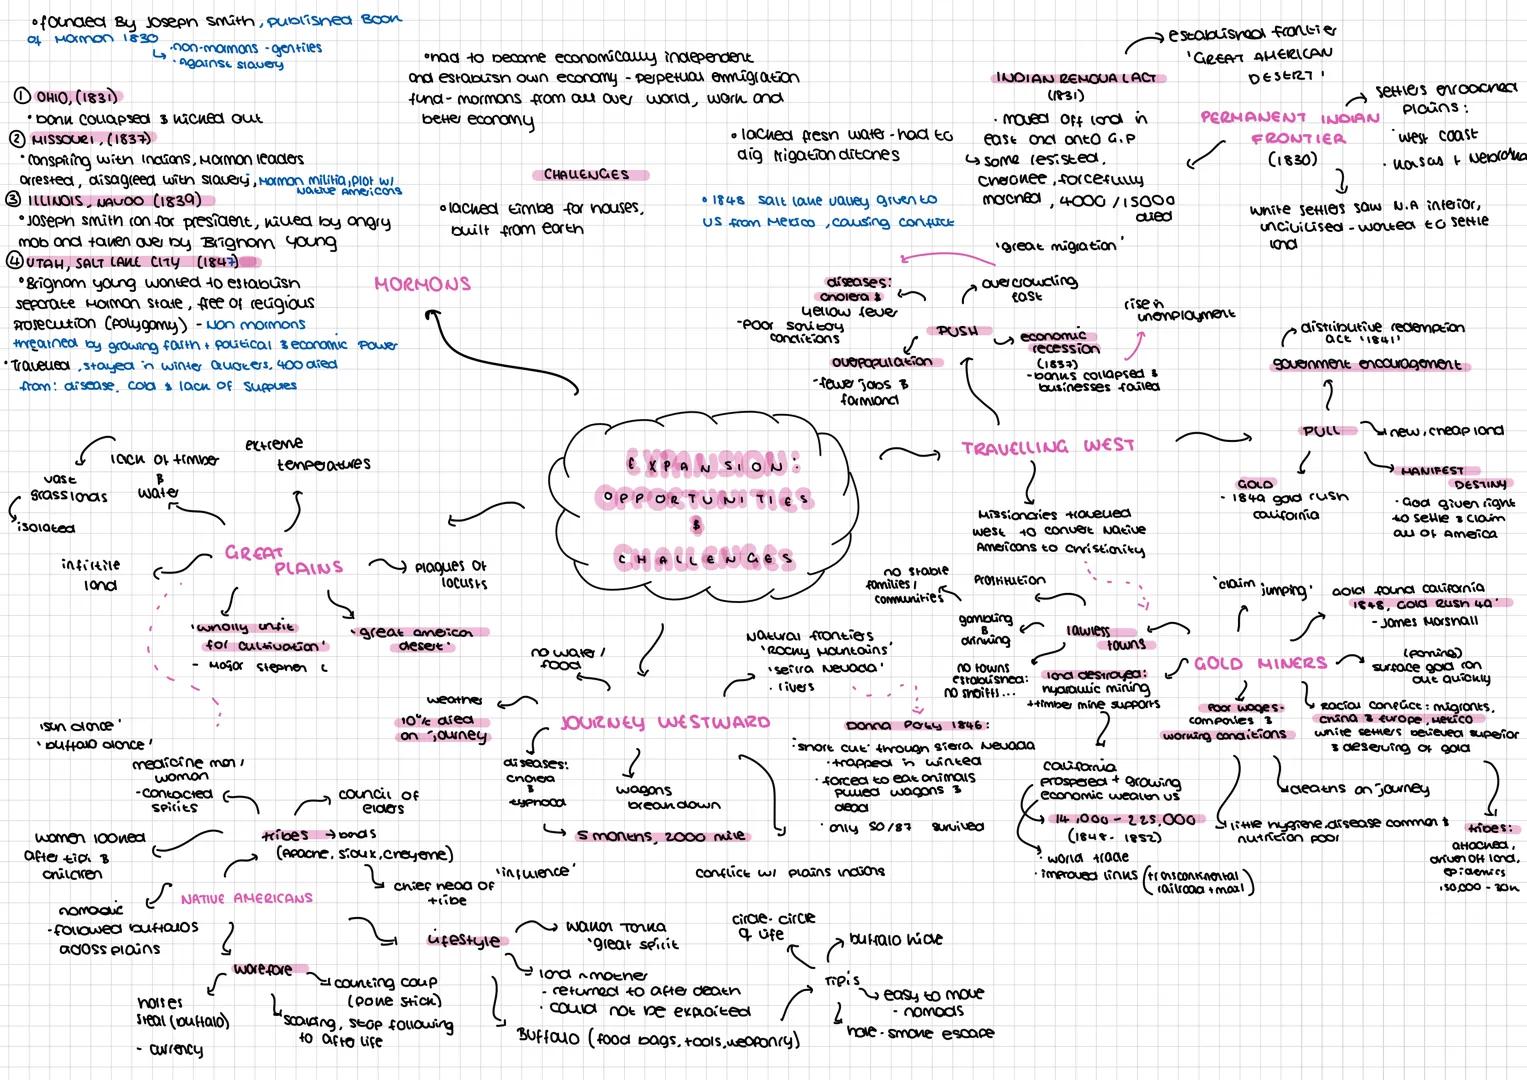 •founded By Joseph Smith, published Book
of Mormon 1830
·non-mormons - gentiles
·against slavery
① OHIO, (1831)
•bank collapsed & kicked out
② MISSOURI, (1837)
•conspiring with Indians, Mormon leaders
arrested, disagreed with slavery, Mormon militia, plot w/
Native Americans
③ ILLINOIS, NAVOO (1839)
•Joseph smith ran for president, killed by angry
mob and taken over by Brigham Young
④ UTAH, SALT LAKE CITY (1847)
•Brigham young wanted to establish
separate Mormon State, free of religious
prosecution (polygamy) - Non mormons
threatned by growing faith + political & economic power
•Travelled, stayed in winter quaters, 400 died
from: disease, cold & lack of supplies
MORMONS
•had to become economically independent
and establish own economy - perpetual emmigration
fund- mormons from all over world, work and
better economy
CHALLENGES
•lacked timber for houses,
built from earth
•lacked fresh water -had to
dig irrigation ditches
•1848 salt lake valley given to
US from Mexico, causing conflict
INDIAN REMOVAL ACT
(1831)
·moved off land in
east and onto G.P
some resisted,
cherokee, forcefully
marched, 4000/15000
died
established frontier
'GREAT AMERICAN
DESERT'
PERMANENT INDIAN
FRONTIER
(1830)
settlers encroached
plains:
·west coast
·kansas + Nebraska
white settlers saw N.A inferior,
uncivilised - wanted to settle
land
'great migration'
diseases:
cholera &
yellow fever
-poor sanitay
conditions
overcrowding
east
PUSH
overpopulation
-fewer jobs &
farmland
economic
recession
(1837)
-banks collapsed &
businesses failed
rise in
unemployment
EXPANSION:
OPPORTUNITIES
&
CHALLENGES
TRAVELLING WEST
distributive redemption
act '1841'
government encouragement
PULL
new, cheap land
GOLD
- 1849 gold rush
california
MANIFEST
DESTINY
·God given right
to settle & claim
all of America
Missionaries travelled
west to convert Native
Americans to christianity
lack of timber
&
water
extreme
temperatures
vast
grasslands
isolated
GREAT
PLAINS
infirtile
land
plagues of
locusts
'wholly unfit
for cultivation'
- Major Stephen L
'great american
desert'
no water/
food
weather
10% died
on journey
JOURNEY WESTWARD
Natural frontiers
'Rocky Mountains'
'seirra Nevada'
·rivers
diseases:
cholera
&
typhoid
wagons
breakdown
5 months, 2000 mile
conflict w/ plains indians
Donna Party 1846:
·'short cut' through siera Nevada
·trapped in winted
·forced to eat animals
pulled wagons &
dead
·only 50/87 survived
no stable
families/
communities
Prostitution
gambling
&
drinking
lawless
towns
no towns
established:
no sheriffs...
land destroyed:
hydraulic mining
+timber mine supports
california
prospered + growing
economic wealth us
14,000 - 225,000
(1848- 1852)
·world trade
·improved links (transcontinental
railroad + mail)
'claim jumping'
Gold found california
1848, Gold Rush 49'
- James Marshall
GOLD MINERS
(panning)
surface gold ran
out quickly
Poor wages-
companies &
working conditions
Racial conflict: migrants,
china & europe, Mexico
white settlers believed superior
& deserving of gold
deaths on journey
little hygiene, disease common &
nutrition poor
tribes:
attacked,
driven off land,
epidemics
150,000 - 30k
'sun dance'
'buffalo dance'
medicine man/
woman
-contacted
spirits
council of
elders
tribes → bands
(Apache, sioux, cheyene)
women looked
after tipi &
children
chief head of
tribe
'influence'
NATIVE AMERICANS
nomadic
-followed buffalos
across plains
warefare
horses
steal (buffalo)
- currency
counting coup
(poke stick)
scalping, stop following
to after life
Lifestyle
Wakan Tanka
'great spirit
land = mother
- returned to after death
·could not be exploited
Buffalo (food bags, tools, weaponry)
circle- circle
of life
buffalo hide
Tipis
easy to move
- nomads
hole - smoke escape